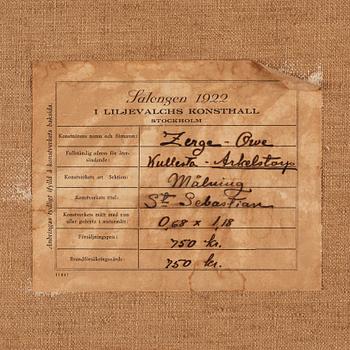 Salongen 1922
I LILJEVALCHS KONSTHALL
STOCKHOLM
Konstnärens namn och förnamn:
Zerge - Owe
Fullständig adress för återsändande:
Kullesta - Arkelstorp
Konstverkets art Sektion:
Målning
Konstverkets titel:
S:t Sebastian
Konstverkets mått med ram eller gohertz i
0,68 x 1,18
Försäljningspris:
750 kr.
Brandförsäkringsvärde:
750 kr.
Anbringas tydligt ifylld å konstverkets baksida.